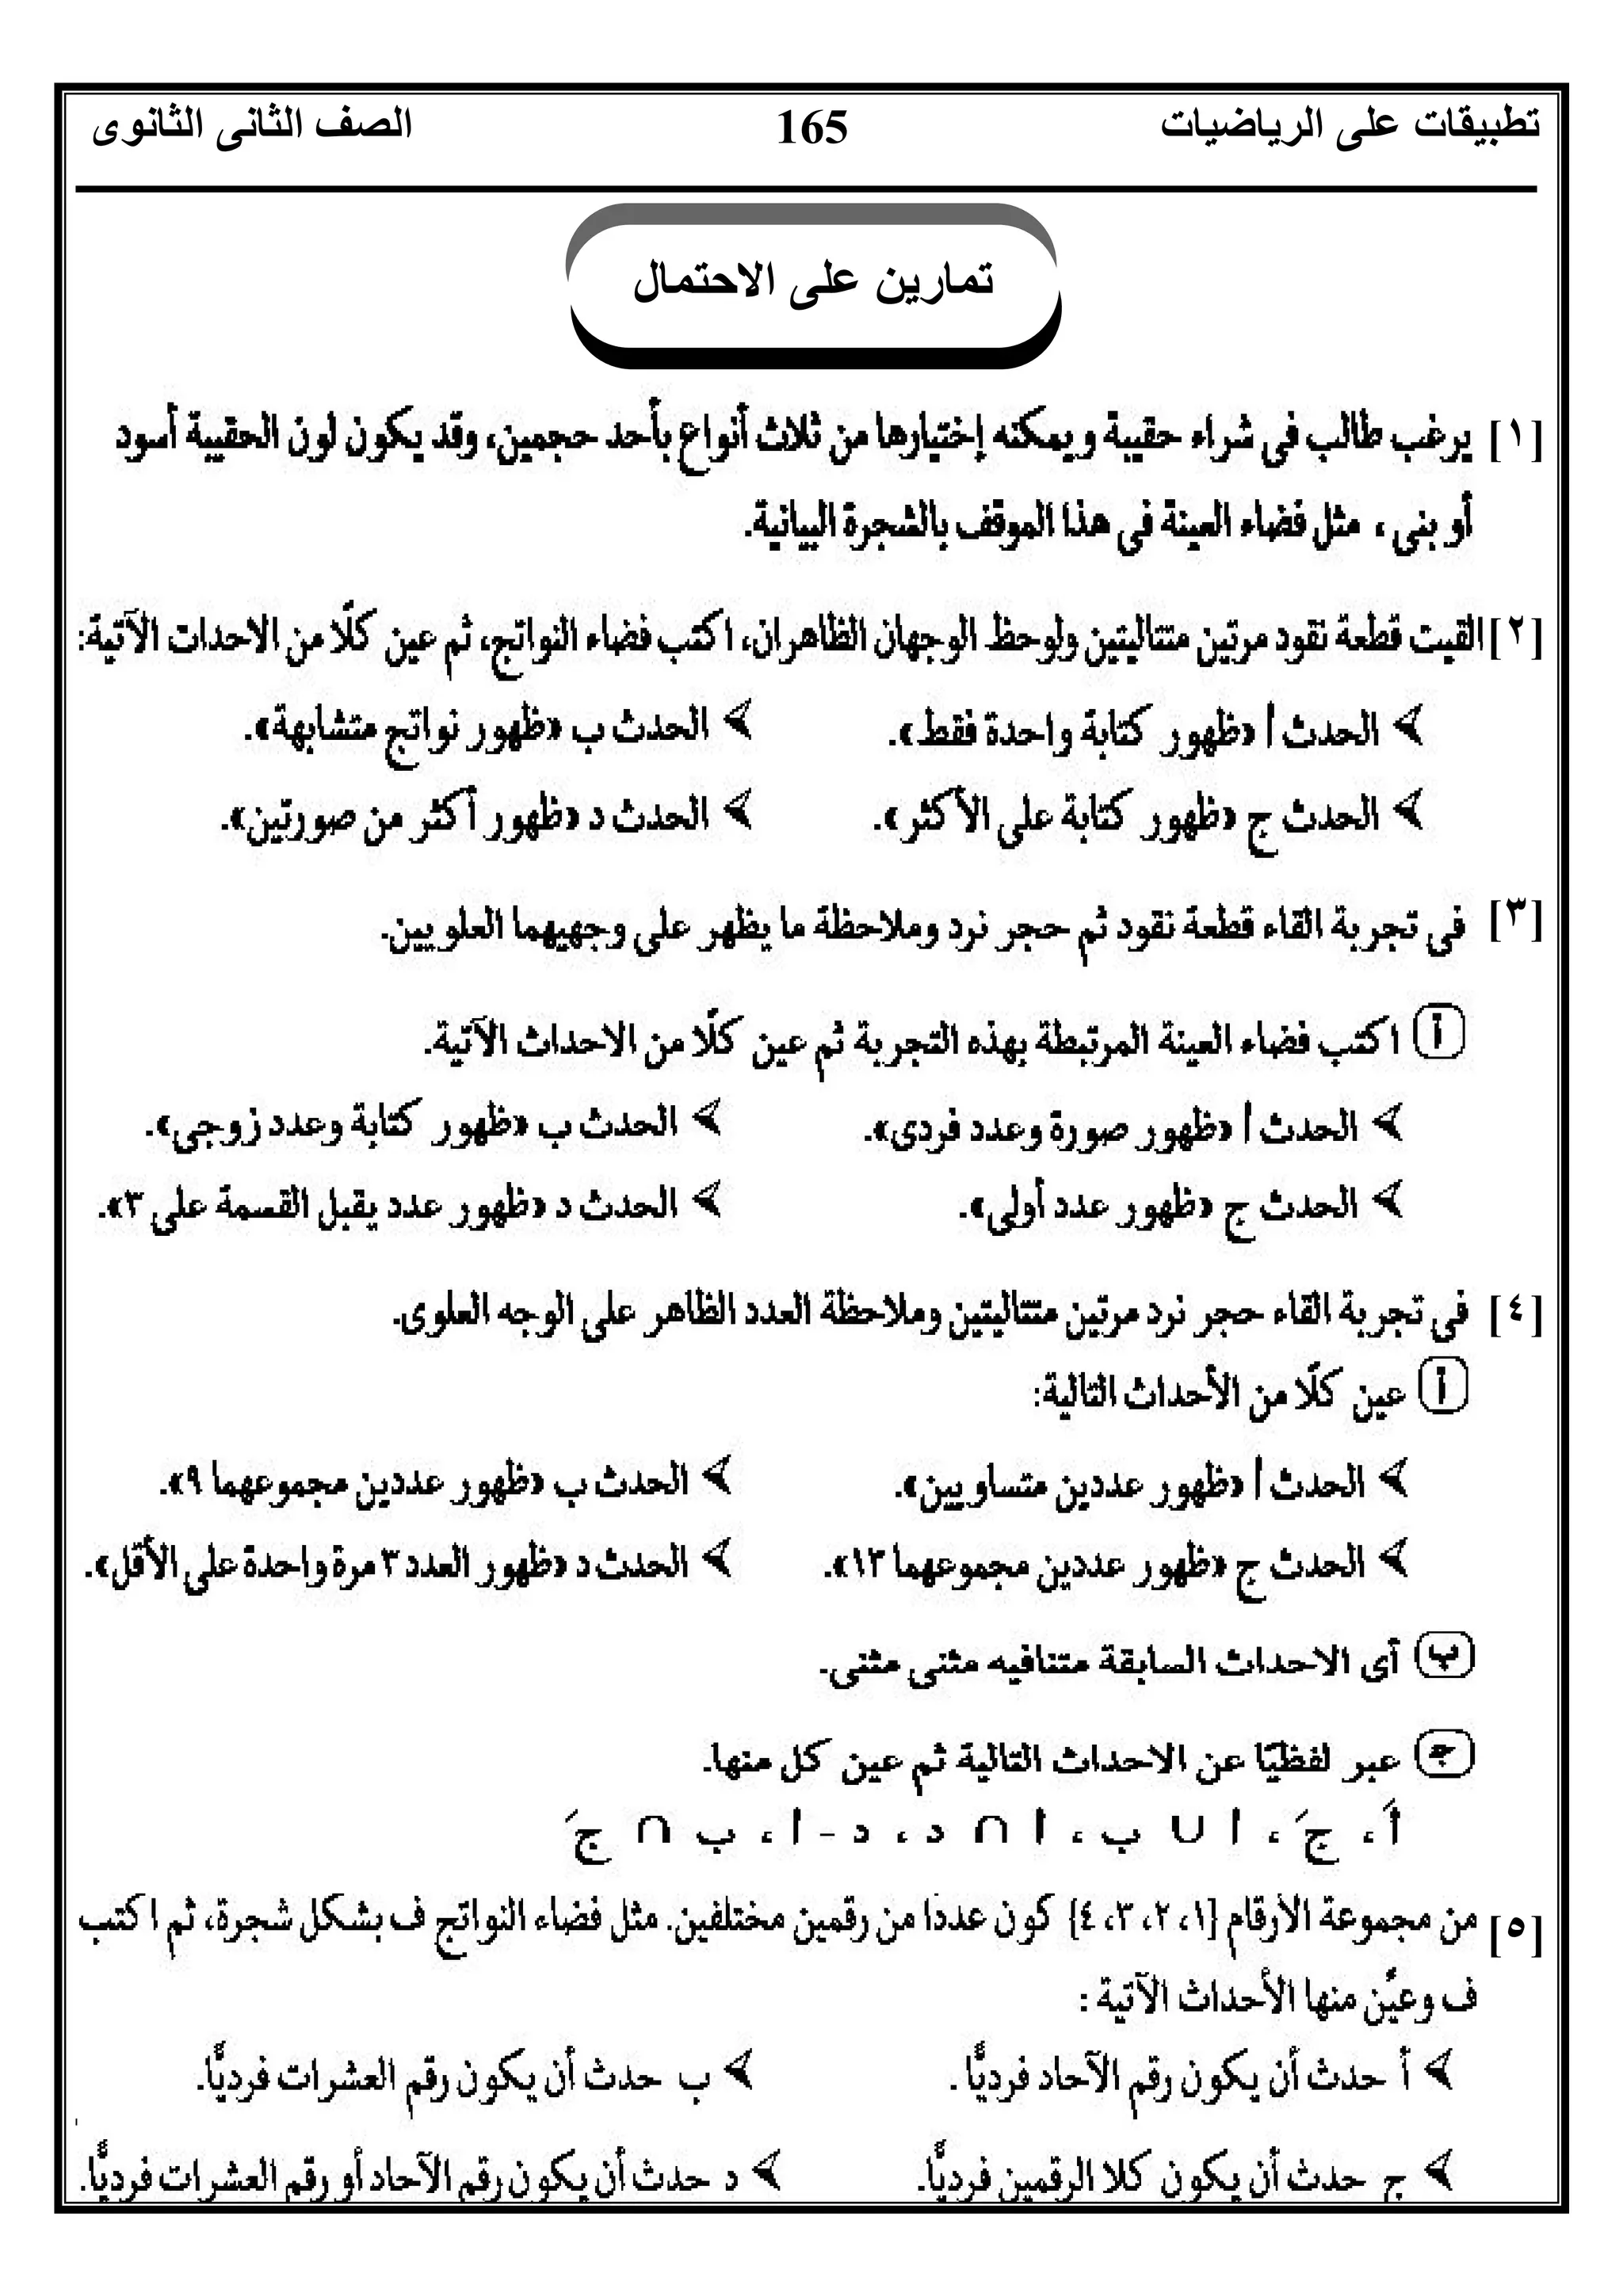 تطبيقات على الرياضيات 165 الصف الثانى الثانوى
تمارين على الاحتمال
[١] يرغب طالب فى شراء حقيبة ويمكنه إختيارها من ثلاث أنواع بأحد حجمين، وقد يكون لون الحقيبة أسود
أو بنى ، مثل فضاء العينة فى هذا الموقف بالشجرة البيانية.
[٢] القيت قطعة نقود مرتين متتاليتين ولوحظ الوجهان الظاهران، اكتب فضاء النواتج، ثم عين كلًا من الاحداث الآتية:
الحدث أ «ظهور كتابة واحدة فقط». الحدث ب «ظهور نواتج متشابهة».
الحدث ج «ظهور كتابة على الأكثر». الحدث د «ظهور أكثر من صورتين».
[٣] فى تجربة القاء قطعة نقود ثم حجر نرد وملاحظة ما يظهر على وجهيهما العلويين.
أ اكتب فضاء العينة المرتبطة بهذه التجربة ثم عين كلًا من الاحداث الآتية.
الحدث أ «ظهور صورة وعدد فردى». الحدث ب «ظهور كتابة وعدد زوجى».
الحدث ج «ظهور عدد أولى». الحدث د «ظهور عدد يقبل القسمة على ٣».
[٤] فى تجربة القاء حجر نرد مرتين متتاليتين وملاحظة العدد الظاهر على الوجه العلوى.
أ عين كلًا من الأحداث التالية:
الحدث أ «ظهور عددين متساويين». الحدث ب «ظهور عددين مجموعهما ٩».
الحدث ج «ظهور عددين مجموعهما ١٣». الحدث د «ظهور العدد ٣ مرة واحدة على الأقل».
ب أى الاحداث السابقة متنافيه مثنى مثنى.
ج عبر لفظيًا عن الاحداث التالية ثم عين كل منها.
أَ ، جَ ، ا ∪ ب ، ا ∩ د ، د - ا ، ب ∩ جَ
[٥] من مجموعة الارقام {١، ٢، ٣، ٤} كون عددا من رقمين مختلفين. مثل فضاء النواتج ف بشكل شجرة، ثم اكتب
ف وعيِّن منها الأحداث الآتية :
أ حدث أن يكون رقم الآحاد فرديًّا . ب حدث أن يكون رقم العشرات فرديًّا.
ج حدث أن يكون كلا الرقمين فرديًّا. د حدث أن يكون رقم الآحاد أو رقم العشرات فرديًّا.